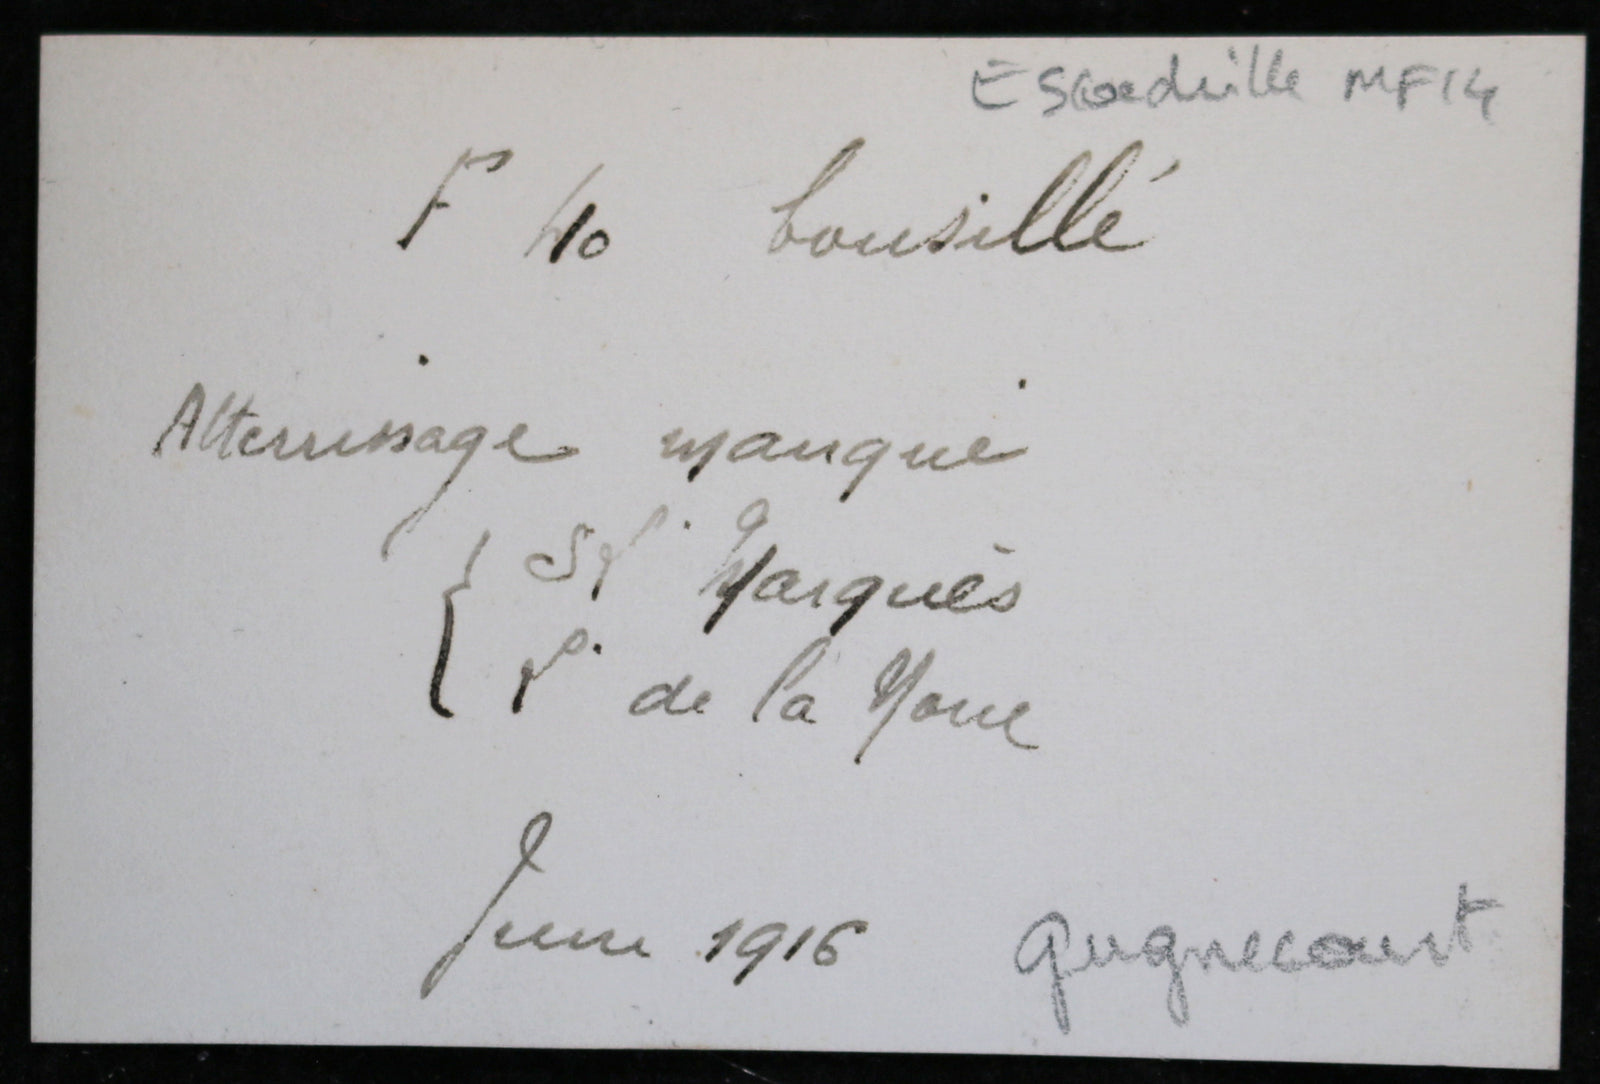 Escadrille MF14
F 40 bousillé
Atterrissage manqué
Marquès
de la Noue
Juin 1916 Gugnecourt